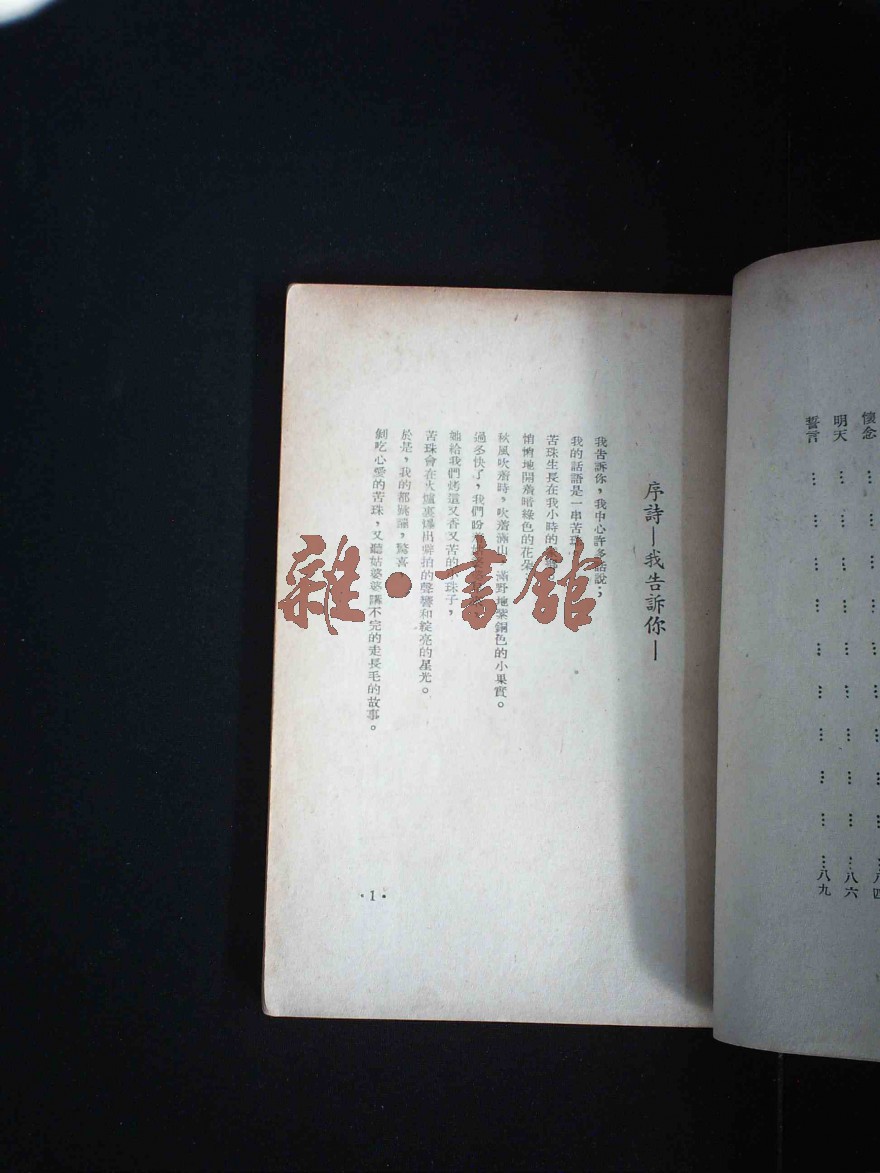 懷念 … … … … … … … … … … 八四
明天 … … … … … … … … … … 八六
誓言 … … … … … … … … … … 八九
序詩—我告訴你—
我告訴你,我中心許多話說;
我的話語是一串苦珠
苦珠生長在我小時的
悄悄地開着暗綠色的花朵
秋風吹着時,吹着滿山滿野地紫銅色的小果實。
過冬快了,我們盼
她給我們烤這又香又苦的小珠子,
苦珠會在火爐裏爆出劈拍的聲響和綻亮的星光。
於是,我的都跳躍,驚喜
剝吃心愛的苦珠,又聽姑婆婆講不完的走長毛的故事。
·1·
雜·書館